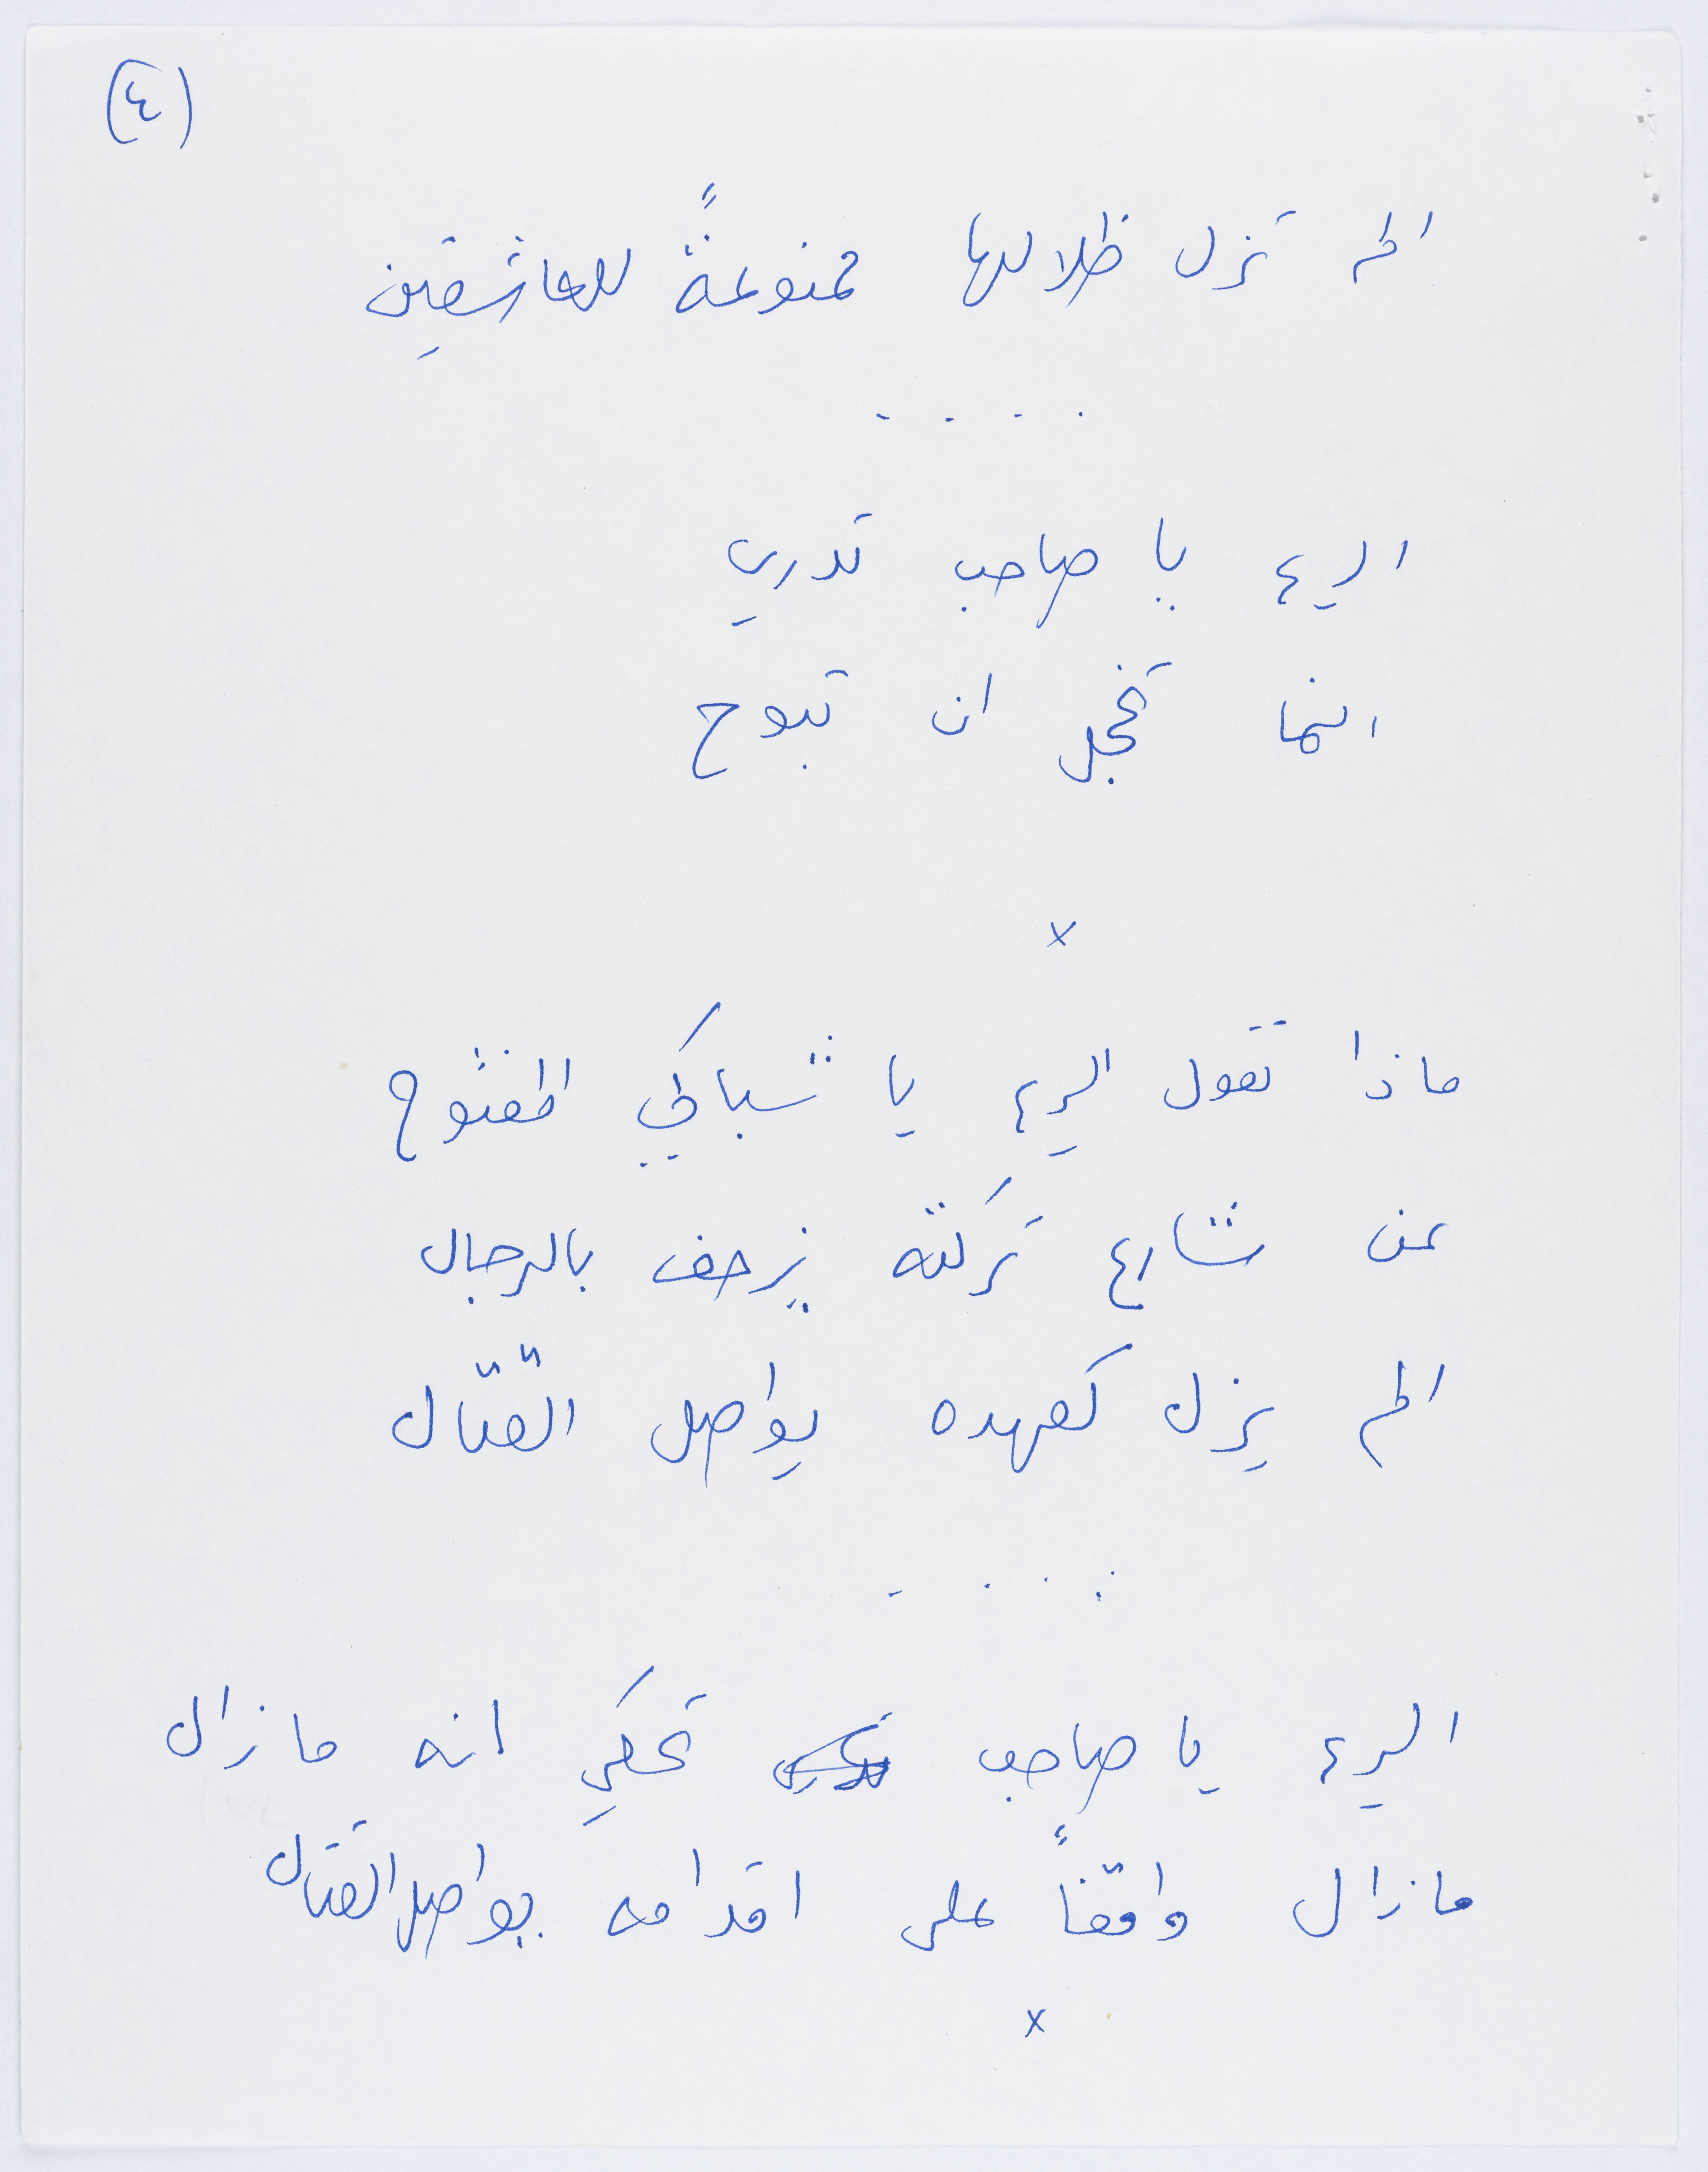 (٤)
الم تزل ظلالها ممنوعةً للعاشقين
. . . .
الريح يا صاحب تدري
انما تخجل ان تبوح
x
ماذا تقول الريح يا شباكي المفتوح
عن شارع تركته يزحف بالرجال
الم يزل كعهده يواصل القتال
. . . .
الريح يا صاحب تحكي انه مازال
مازال واقفاً على اقدامه يواصل القتال
x